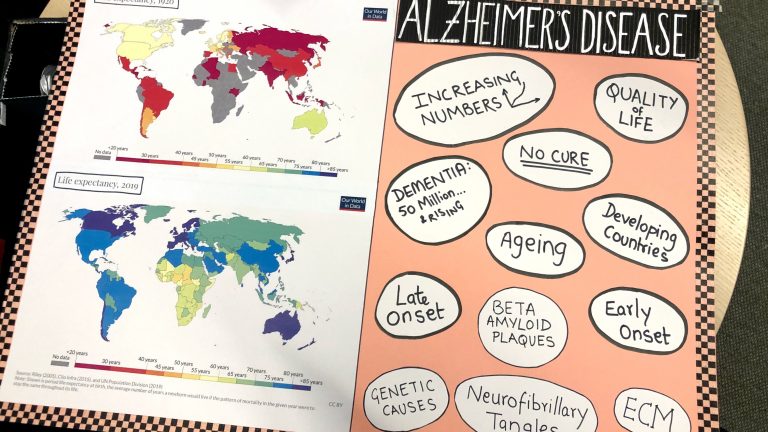 expectancy, 1920
Our World
in Data
No data
<20 years
30 years
40 years
45 years
50 years
55 years
60 years
65 years
70 years
75 years
80 years
>85 years
Life expectancy, 2019
Our World
in Data
No data
<20 years
30 years
40 years
45 years
50 years
55 years
60 years
65 years
70 years
75 years
80 years
>85 years
Source: Riley (2005), Clio Infra (2015), and UN Population Division (2019)
Note: Shown is period life expectancy at birth, the average number of years a newborn would live if the pattern of mortality in the given year were to
stay the same throughout its life.
CC BY
ALZHEIMER'S DISEASE
INCREASING
NUMBERS
QUALITY
of
LIFE
NO CURE
DEMENTIA:
50 Million...
& RISING
Developing
Countries
Ageing
Late
Onset
BETA
AMYLOID
PLAQUES
Early
Onset
GENETIC
CAUSES
Neurofibrillary
Tangles
ECM